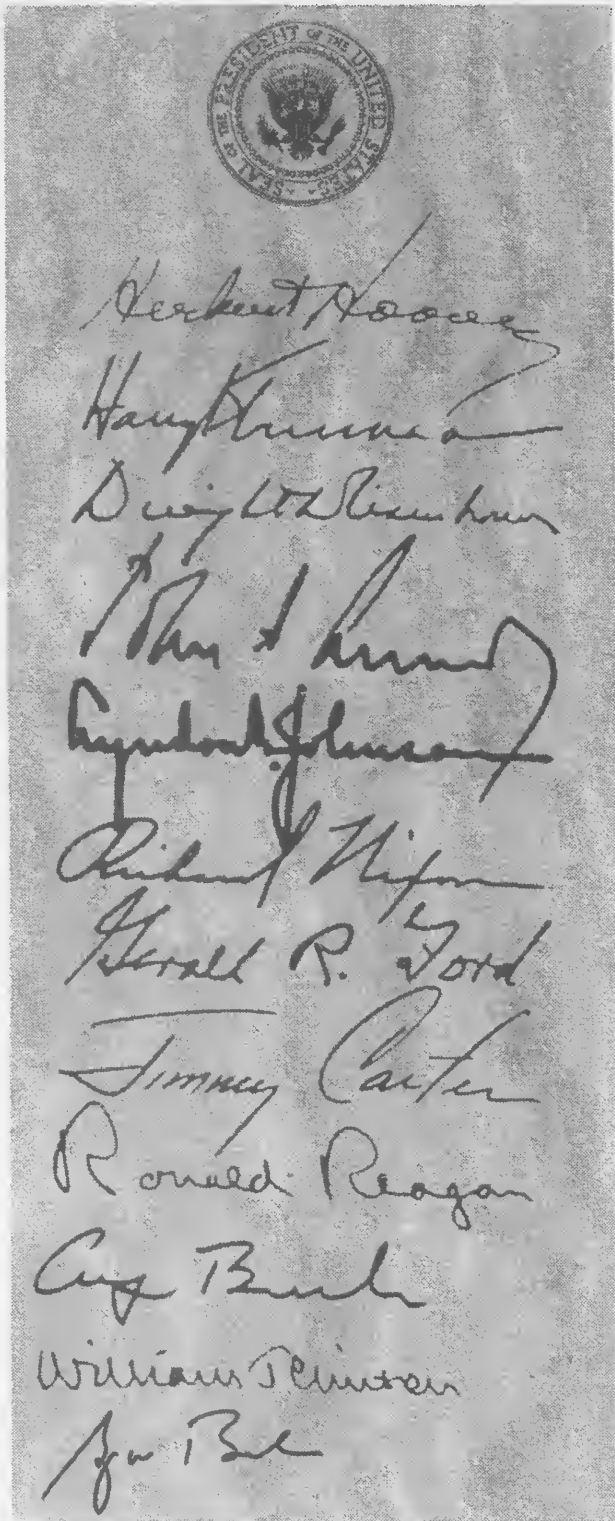 SEAL OF THE PRESIDENT OF THE UNITED STATES
Herbert Hoover
Harry S Truman
Dwight D Eisenhower
John F Kennedy
Lyndon B. Johnson
Richard Nixon
Gerald R. Ford
Jimmy Carter
Ronald Reagan
George Bush
William J Clinton
George Bush